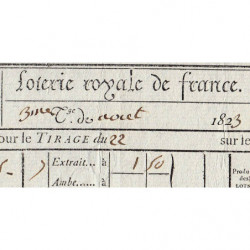 Loterie royale de france.
3me Tge. de aout 1823
our le TIRAGE du 22 sur le
Extrait... à 1 50 Produ
Ambe...... des
LOT